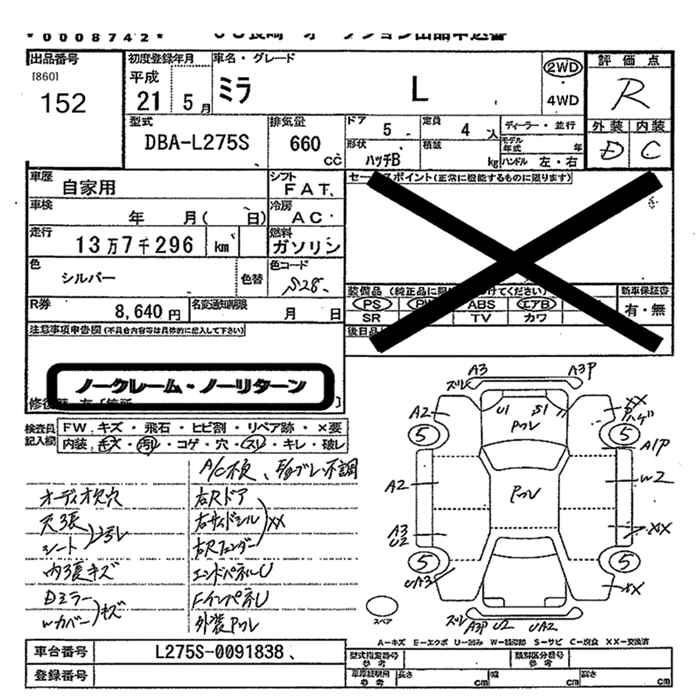 *0008742*
出品番号
[860]
152
初度登録年月
平成
21 5月
車名・グレード
ミラ L
2WD
4WD
評価点
R
外装 内装
D C
型式
DBA-L275S
排気量
660
cc
ドア
5
定員
4 人
ディーラー・並行
形状
ハッチB
積載
kg
モデル年式
年
ハンドル 左・右
車歴
自家用
シフト
FAT
車検
年 月( 日)
冷房
AC
走行
13万7千296 km
燃料
ガソリン
色
シルバー
色替
色コード
S28
R券
8,640円
名変通知期限
月 日
セールスポイント(正常に機能するものに限ります)
装備品
PS ABS エアB
SR TV カワ
新車保証書
有・無
注意事項申告欄(不具合内容等は具体的に記入して下さい)
ノークレーム・ノーリターン
検査員記入欄
FW、キズ・飛石・ヒビ割・リペア跡・×要
内装、キズ・汚・コゲ・穴・スリ・キレ・破レ
A/C不良、
不調
オーディオ欠穴
天張
シート
内張キズ
Dミラー
Wカバー
キズ
右Rドア
右サイドシル
右Rフェンダー
XX
エンドパネルU
FインパネU
外装PフU
A3 A3P
ズレ
A2
U1 S1
XX
ハゲ
5 5
A1P
A2
W2
A3
U2
XX
5 5
UA3
XX
ズレ
A3P U2 UA2
スペア
A-キズ E-エクボ U-凹み W-補修跡 S-サビ C-腐食 XX-交換済
車台番号
L275S-0091838
登録番号
型式指定番号
参考
類別区分番号
参考
長さ cm
幅 cm
高さ cm